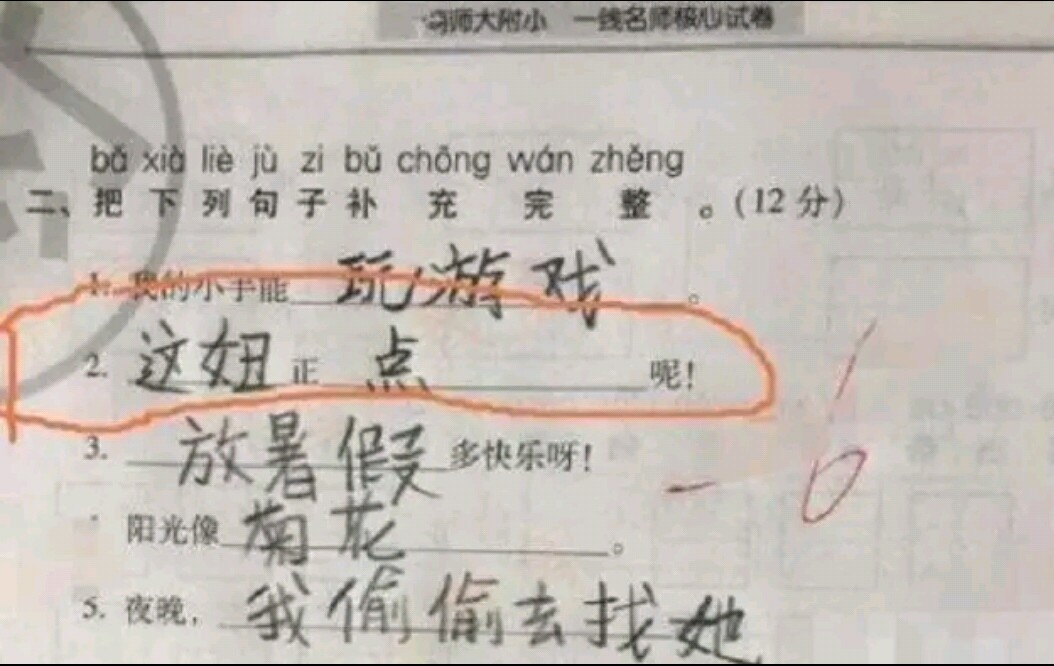 师大附小 一线名师核心试卷
bǎ xià liè jù zi bǔ chōng wán zhěng
二、把下列句子补充完整。(12分)
1. 我的小手能玩游戏。
2. 这妞正点呢!
3. 放暑假多快乐呀!
阳光像菊花。
5. 夜晚,我偷偷去找她
-6